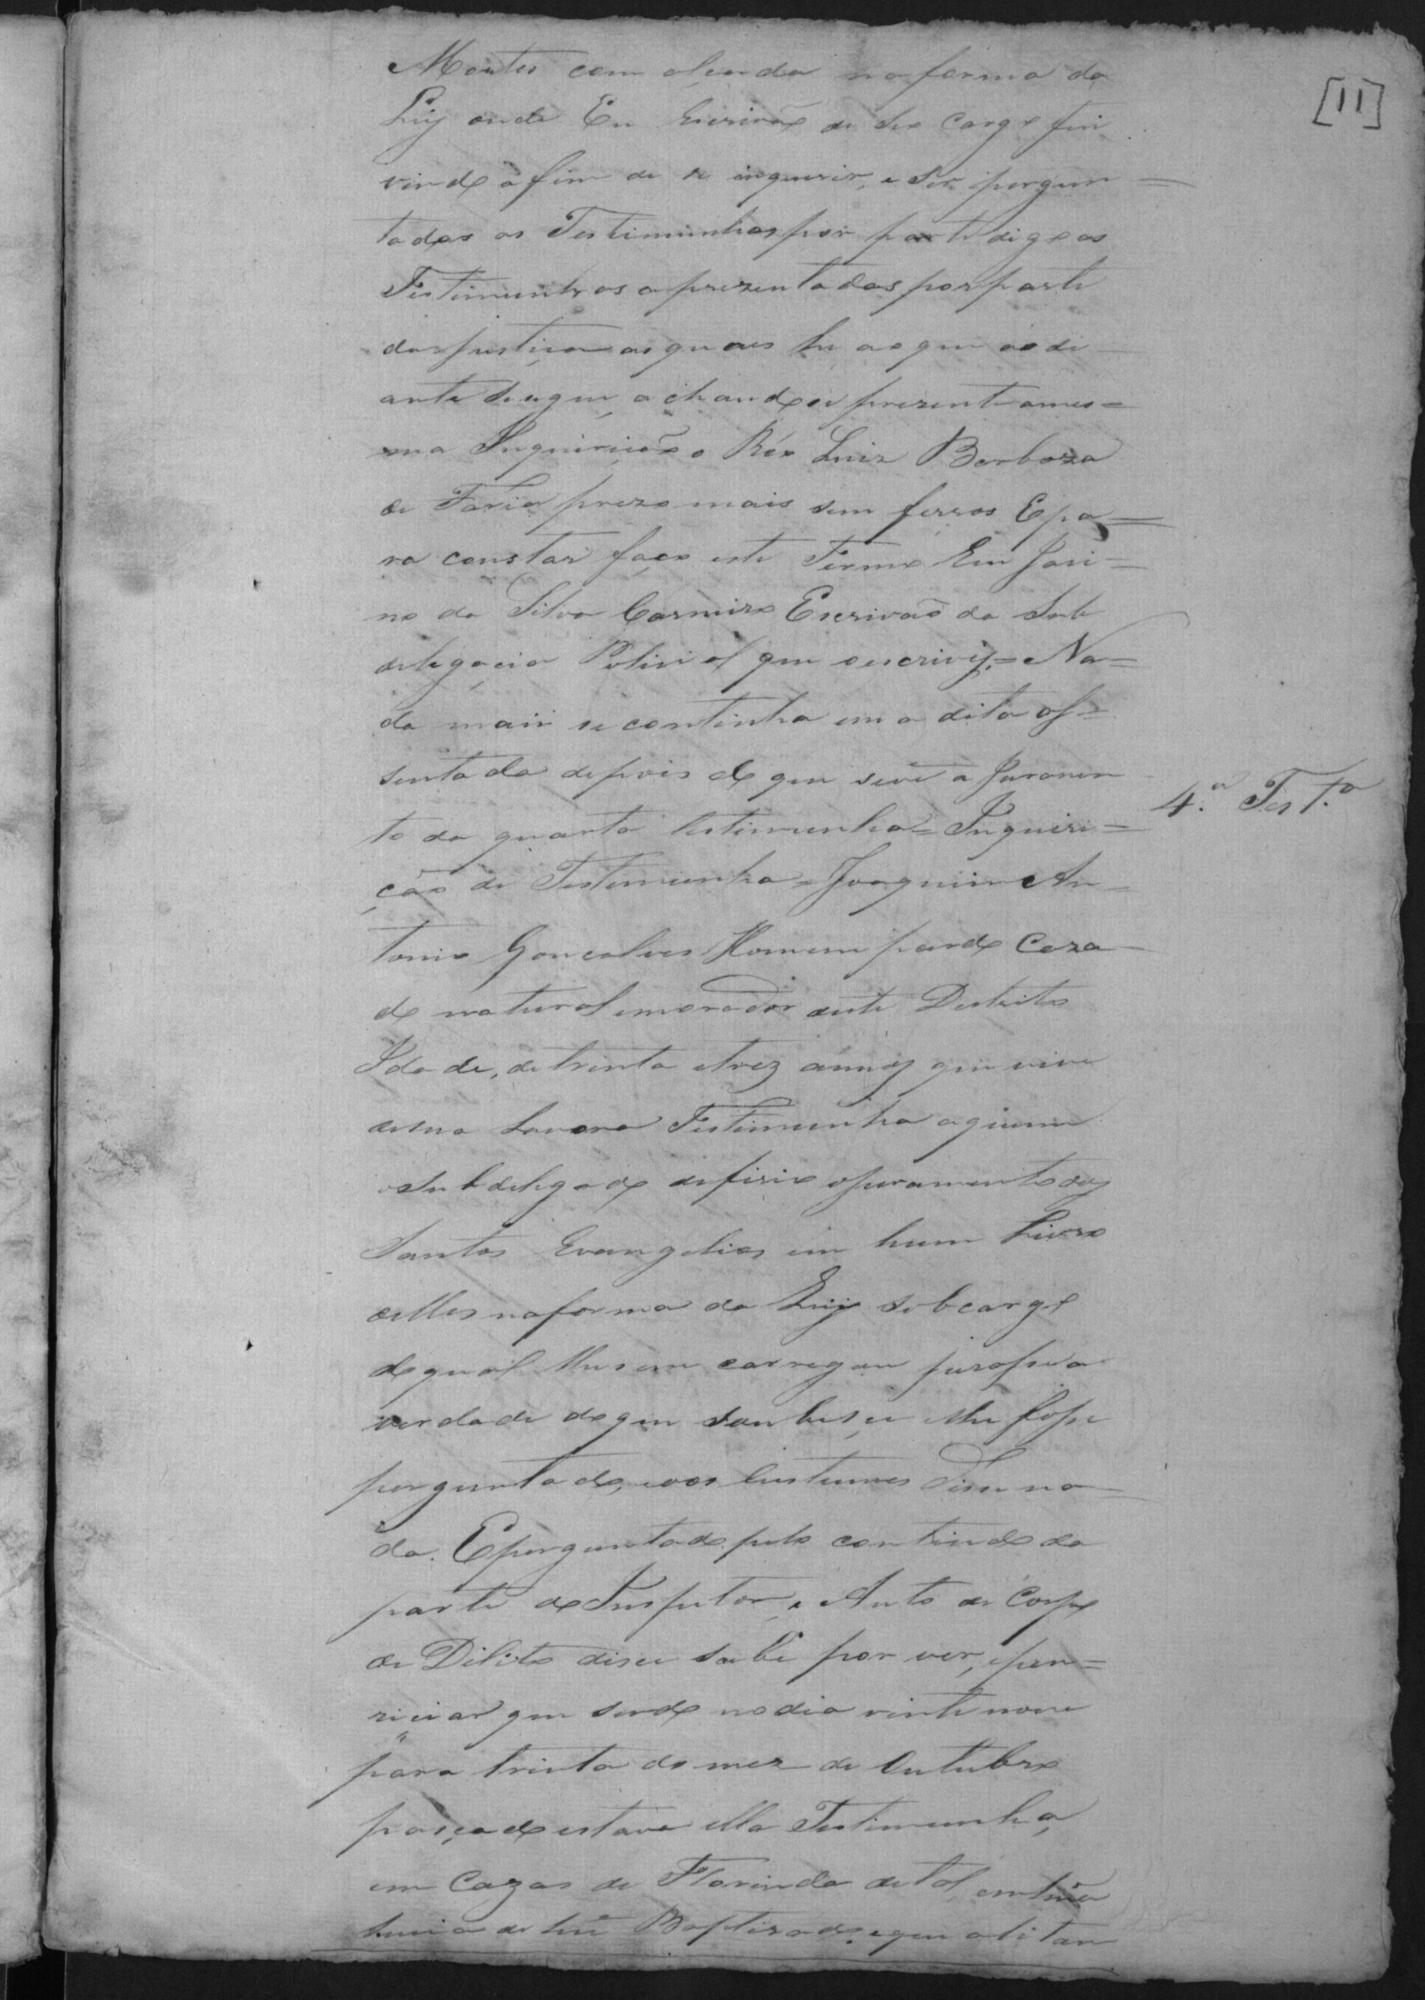 [11]
Montes com alçada na forma da
Ley onde Eu Escrivão de seu Cargo fui
vindo a fim de se inquerir, e ser pergun=
tadas as Testimunhas por parte digo as
Testimunhas aprezentadas por parte
da Justiça as quaes he ao que ao di
ante segue, achandose prezente a mes=
ma Inquirição o Réo Luiz Barboza
de Faria prezo mais sem ferros E pa=
ra constar faço este Termo Eu Jari=
no da Silva Carneiro Escrivão da Sub
delegacia Policial que escrivy. = Na=
da mais se continha em a dita as=
sentada depois do que se vê a Juramen
to da quarta testimunha = Inquiri=
ção de Testimunha = Joaquim An=
4.ª Test.ª
tonio Gonçalves Homem pardo Caza
do natural e morador neste Destrito
Idade, de trinta e trez annos que vive
de sua Lavora Testimunha a quem
o Subdelegado difirio o juramento dos
Santos Evangelios em hum Livro
delles na forma da Ley sob cargo
do qual lhe em carregou jurasse a
verdade do que soubesse e lhe fosse
perguntado, e aos Custumes Disse na
da. E perguntado pelo contiudo da
parte do Inspetor, e Auto de Corpo
de Dilito disse sabe por ver, e pren=
ziciar que sendo no dia vinte nove
para trinta do mez de Outubro
paçado estava ella Testimunha,
em Cazas de Florinda de tal,
de hũ Baptizado, e que